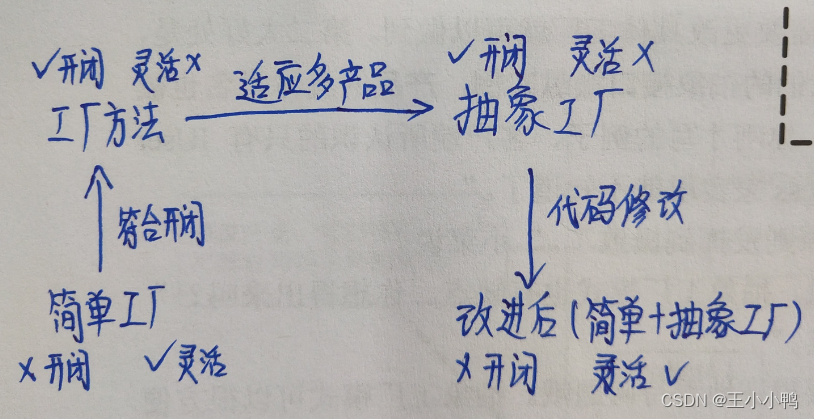 ✓开闭 灵活×
工厂方法
适应多产品
✓开闭 灵活×
抽象工厂
符合开闭
代码修改
简单工厂
×开闭 ✓灵活
改进后(简单+抽象工厂)
×开闭 灵活✓
CSDN @王小小鸭